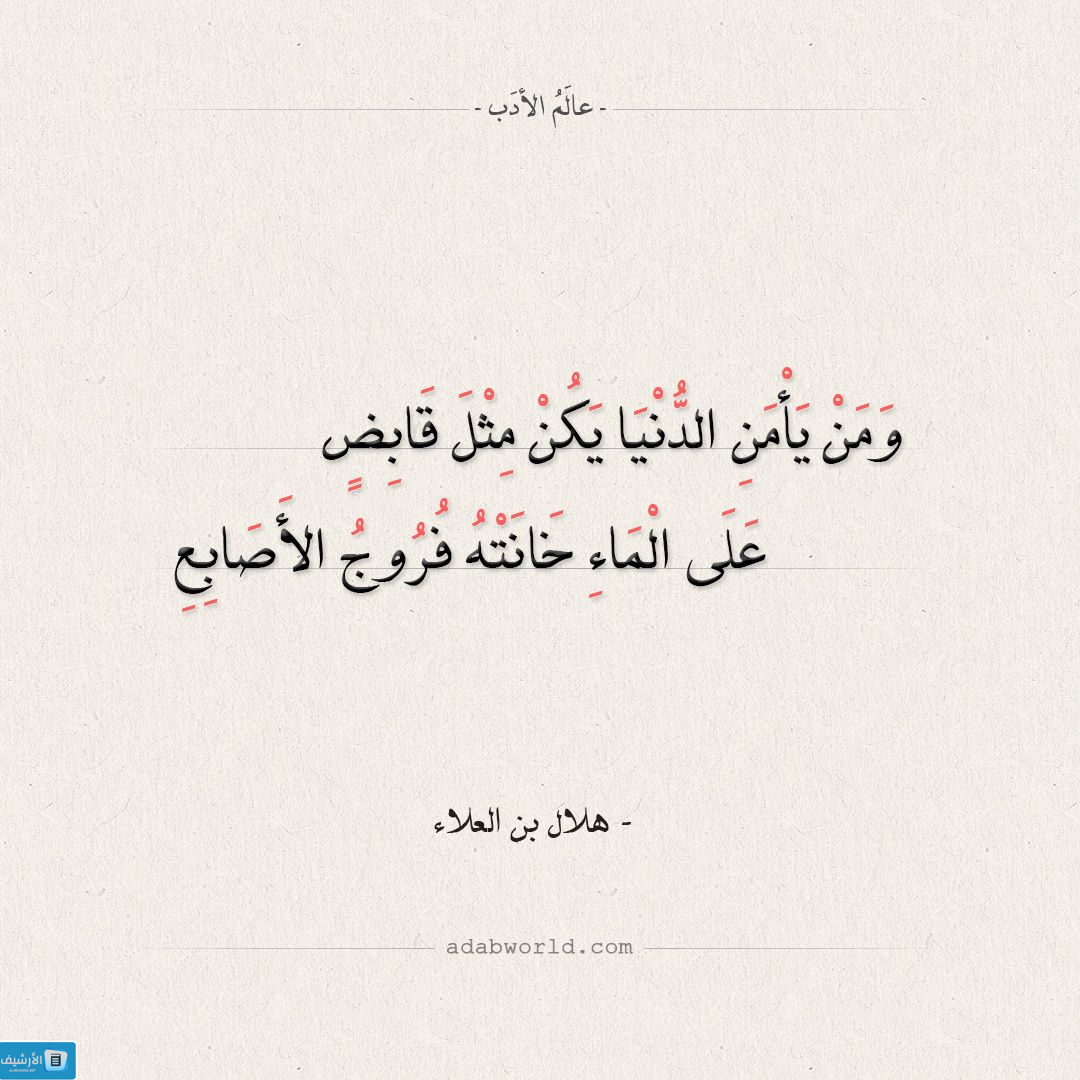 - عالَمُ الأدَب -
وَمَنْ يَأْمَنِ الدُّنْيَا يَكُنْ مِثْلَ قَابِضٍ
عَلَى الْمَاءِ خَانَتْهُ فُرُوجُ الأَصَابِعِ
- هلال بن العلاء
adabworld.com
الأرشيف